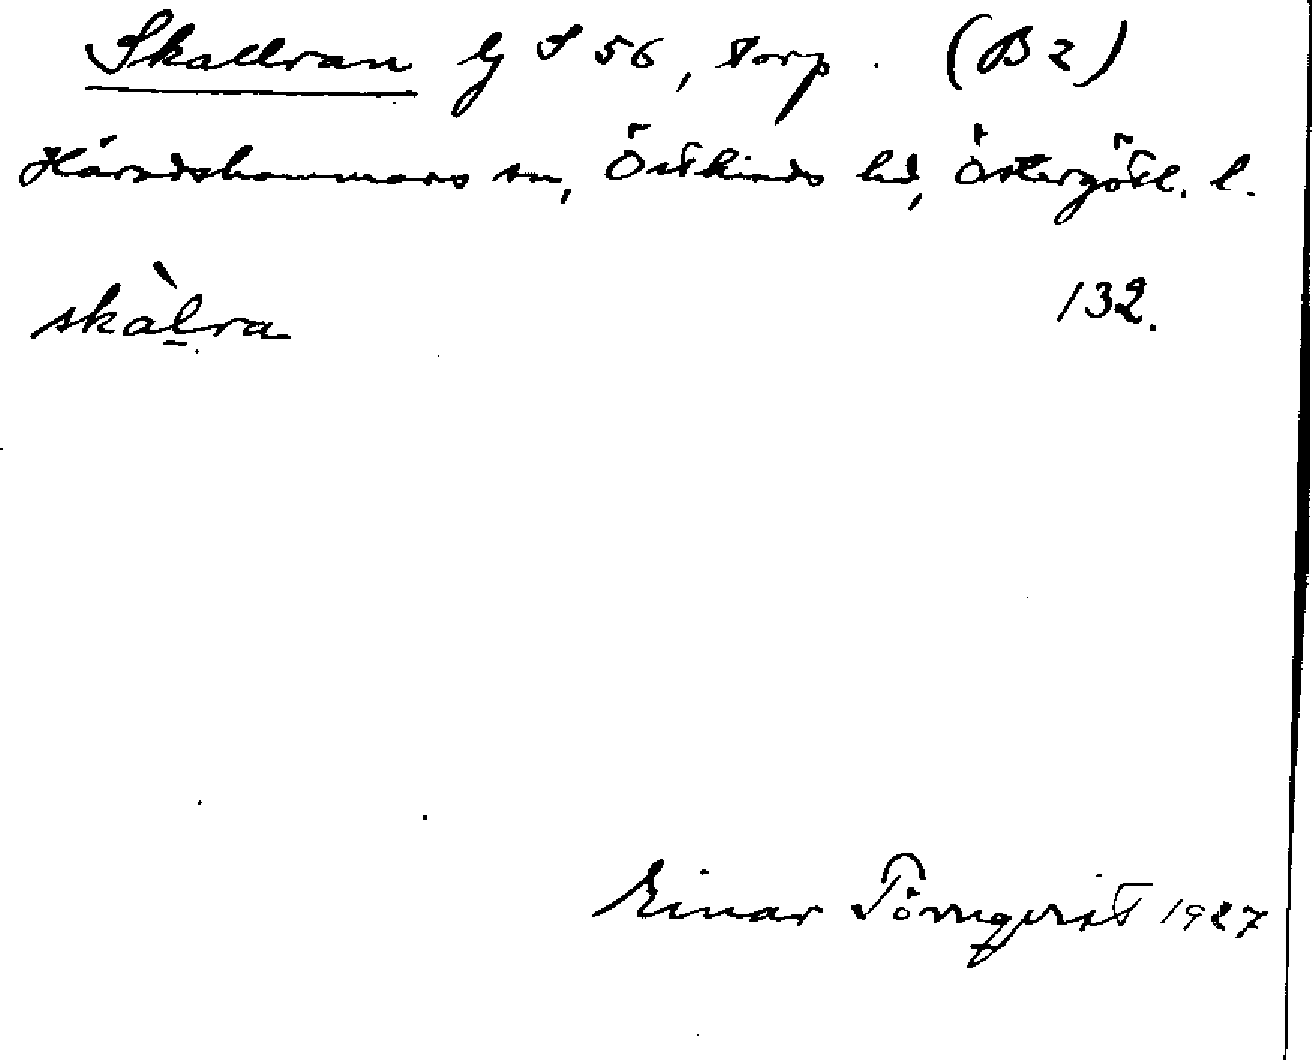 Skallran lj S 56, torp. (B 2)
Häradshammars sn, Östkinds hd, Östergötl. l.
skàl̲ra 132.
Einar Törnqvist 1927